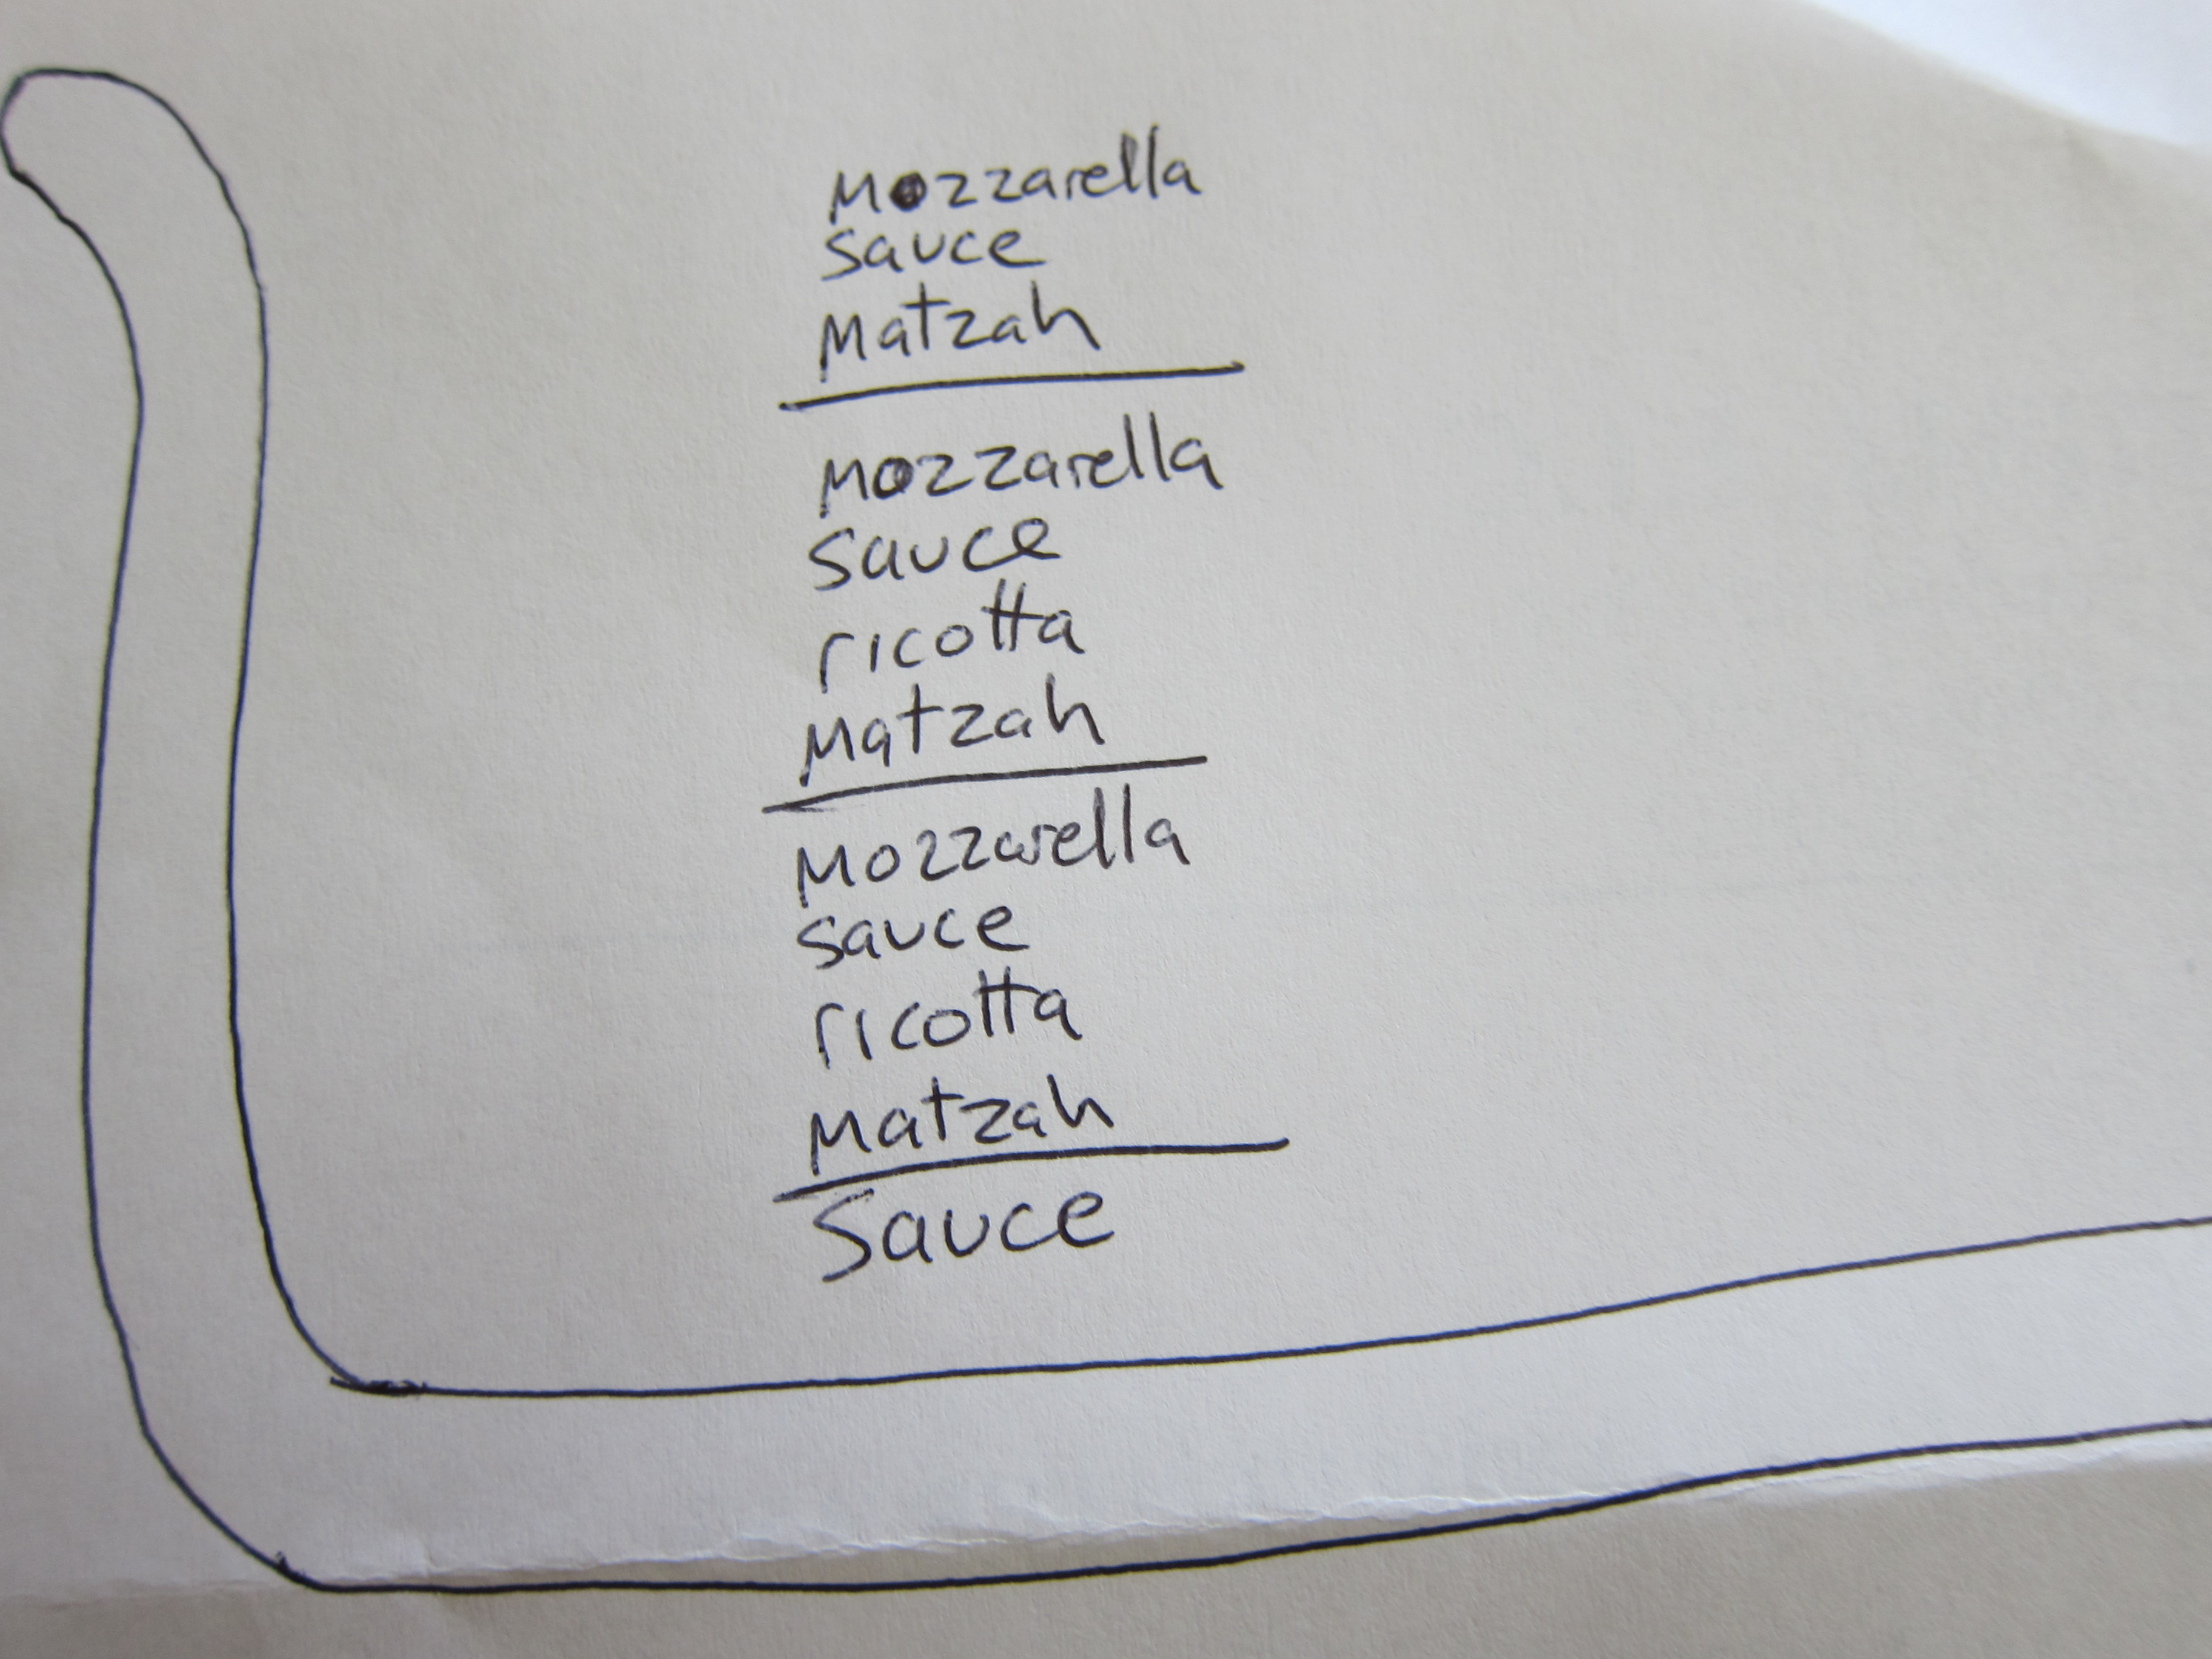 Mozzarella
sauce
Matzah
Mozzarella
sauce
ricotta
Matzah
Mozzarella
sauce
ricotta
Matzah
Sauce